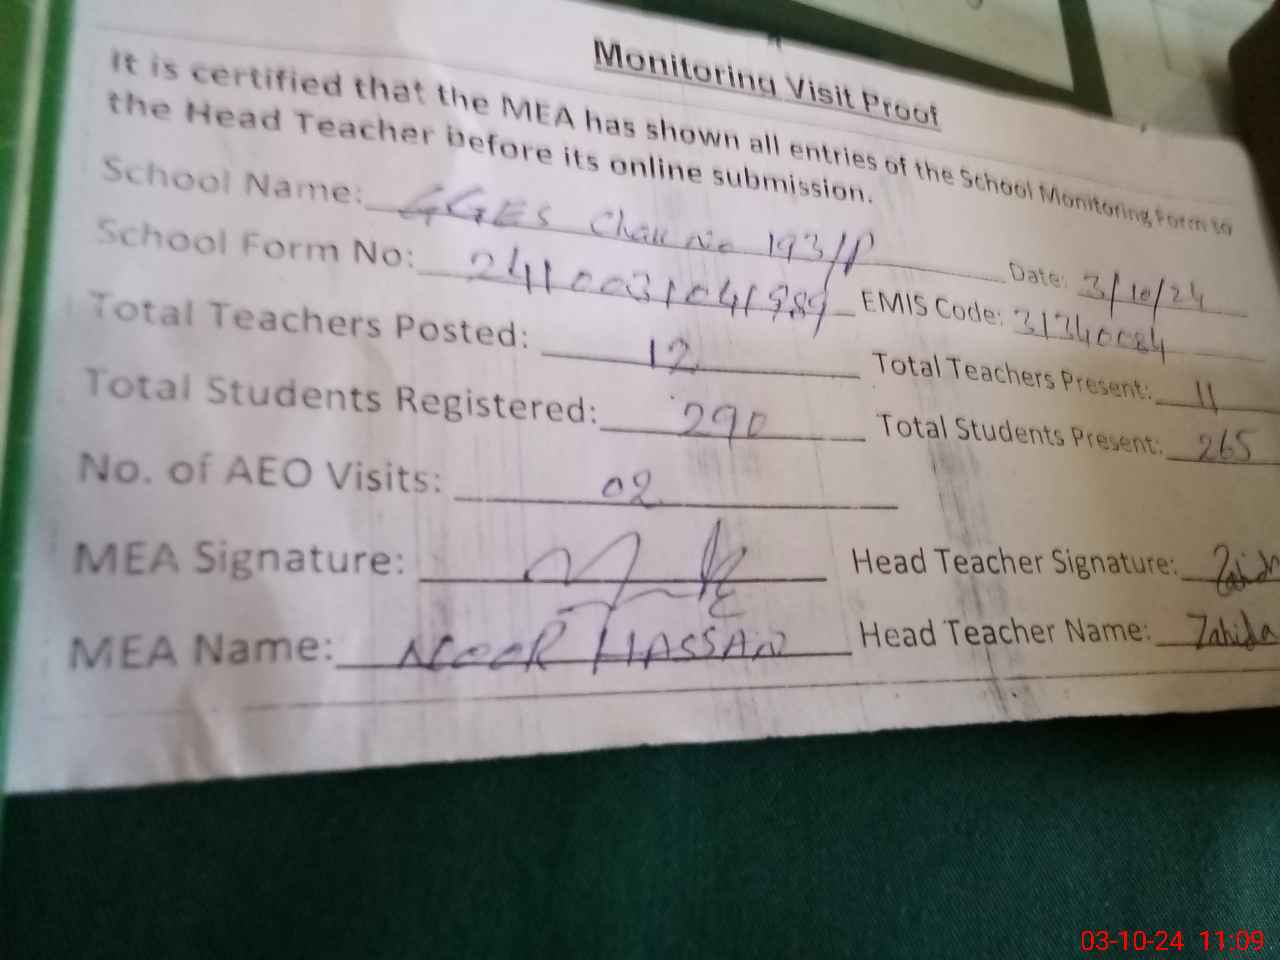 Monitoring Visit Proof
It is certified that the MEA has shown all entries of the School Monitoring Form to
the Head Teacher before its online submission.
School Name: GGES Chak No 193/P Date: 3/10/24
School Form No: 2410031041989 EMIS Code: 31340084
Total Teachers Posted: 12 Total Teachers Present: 11
Total Students Registered: 290 Total Students Present: 265
No. of AEO Visits: 02
MEA Signature: Head Teacher Signature: Zahida
MEA Name: NOOR HASSAN Head Teacher Name: Zahida
03-10-24 11:09